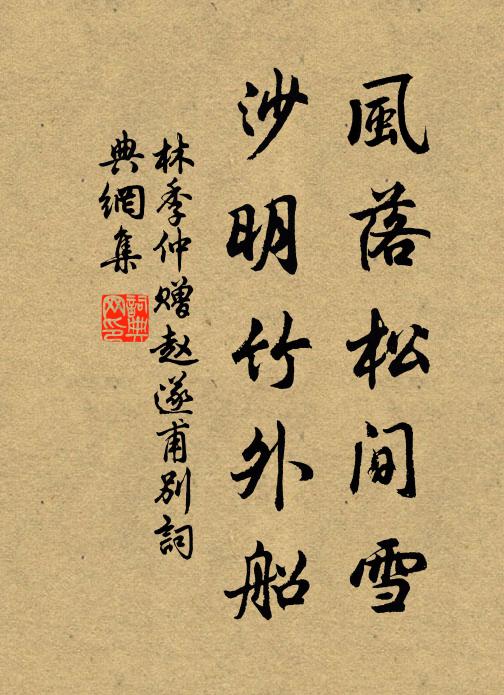 風落松間雪
沙明竹外船
林季仲贈赵遂甫别詞
典網集
詞典
网印